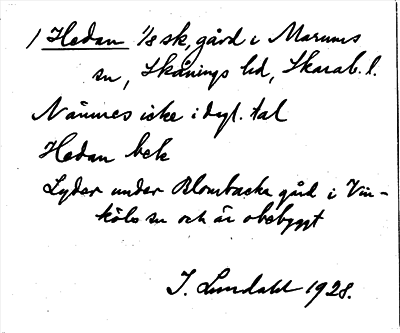 1 Hedan 1/8 sk, gård i Marums
sn, Skånings hd, Skarab. l.
Nämnes icke i dagl. tal
Hedan bek
Lyder under Blombacka gård i Vin-
köls sn och är obebyggt
J. Lundahl 1928.